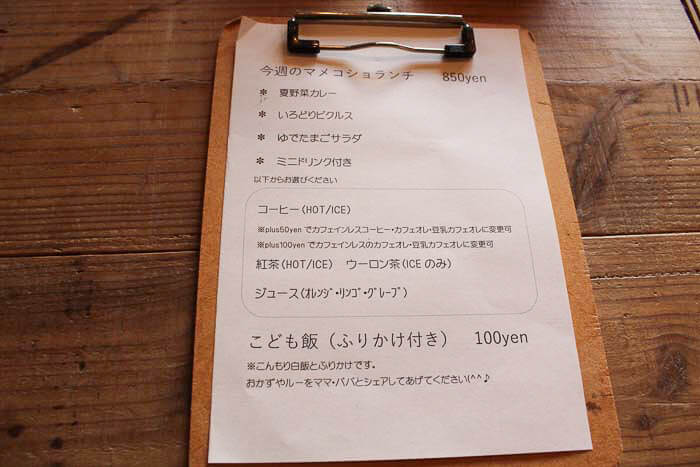 今週のマメコショランチ 850yen
✽ 夏野菜カレー
✽ いろどりピクルス
✽ ゆでたまごサラダ
✽ ミニドリンク付き
以下からお選びください
コーヒー(HOT/ICE)
※plus50yen でカフェインレスコーヒー・カフェオレ・豆乳カフェオレに変更可
※plus100yen でカフェインレスのカフェオレ・豆乳カフェオレに変更可
紅茶(HOT/ICE) ウーロン茶(ICE のみ)
ジュース(ｵﾚﾝｼﾞ・ﾘﾝｺﾞ・ｸﾞﾚｰﾌﾟ)
こども飯（ふりかけ付き） 100yen
※こんもり白飯とふりかけです。
おかずやルーをママ・パパとシェアしてあげてください(^^♪